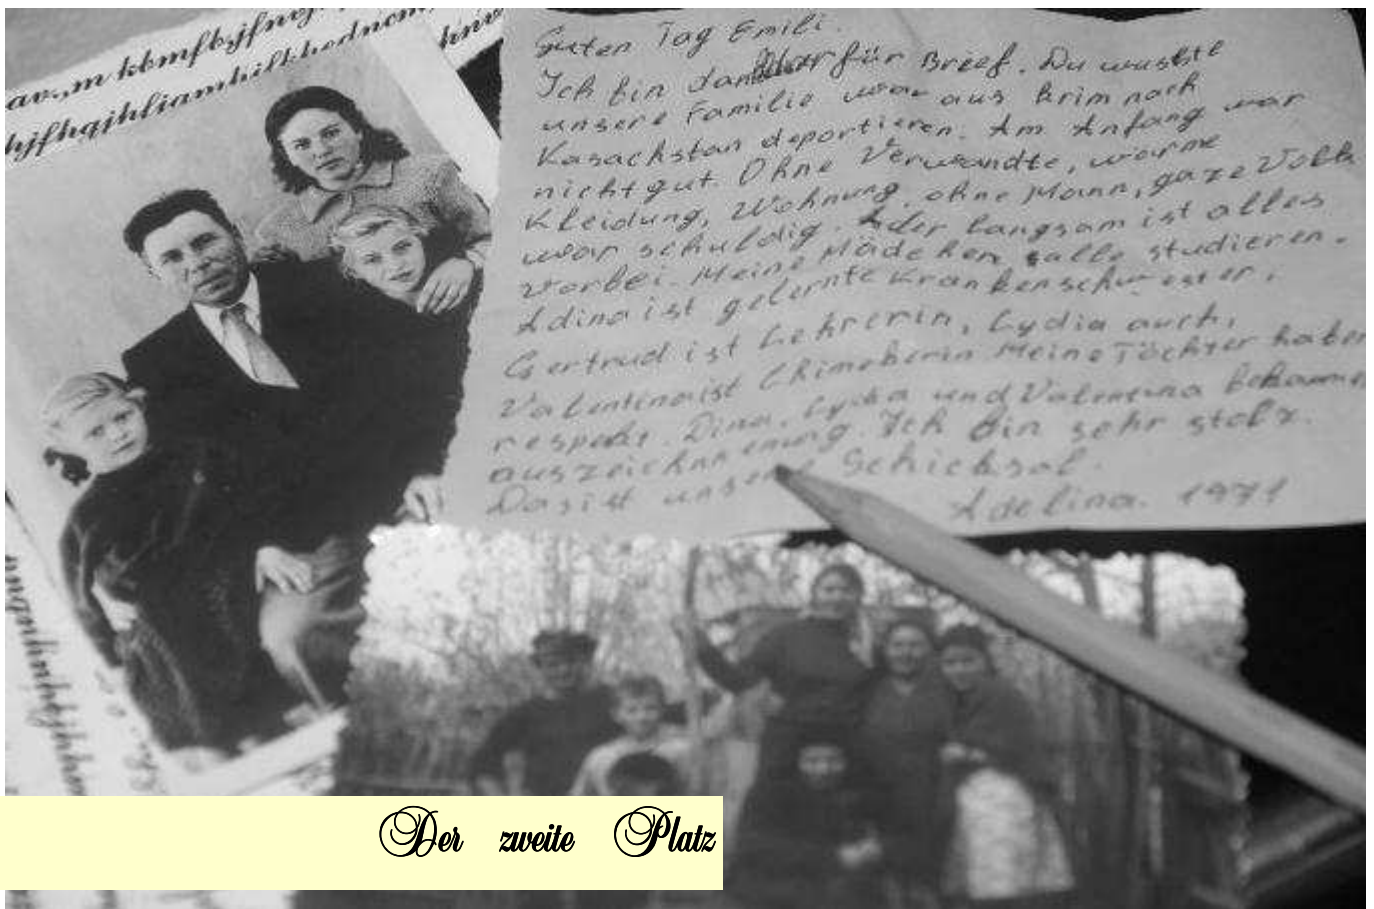 av.,m kbmfkjfnvj
hjfhgjhliamhilkhedncm,
Guten Tag Emili.
Ich bin dankbar für Breef. Du wusste
unsere Familie war aus Krim nach
Kasachstan deportieren. Am Anfang war
nicht gut. Ohne Verwandte, warme
Kleidung, Wohnung, ohne Mann, gaze Volk
war schuldig. Ader langsam ist alles
Vorbei. Meine Mädchen alle studieren.
Adina ist gelernte Krankenschwester,
Gertrud ist Lehrerin, Lydia auch,
Valentina ist Chimekerin Meine Töchter haben
respekt. Dina, Lydia und Valentina bekamme
auszeichnenung. Ich bin sehr stolz.
Das ist unsere Schicksal.
Adelina. 1971
Der zweite Platz